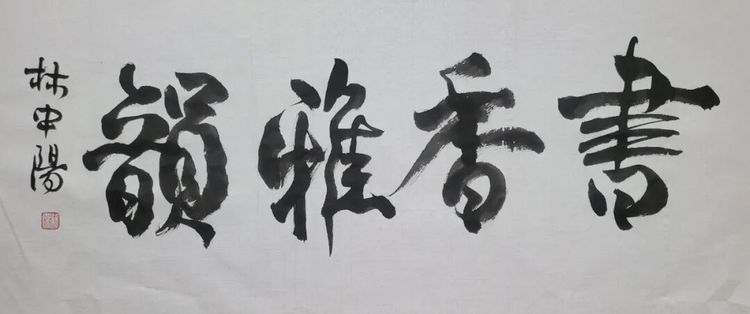 書香雅韻
林中陽